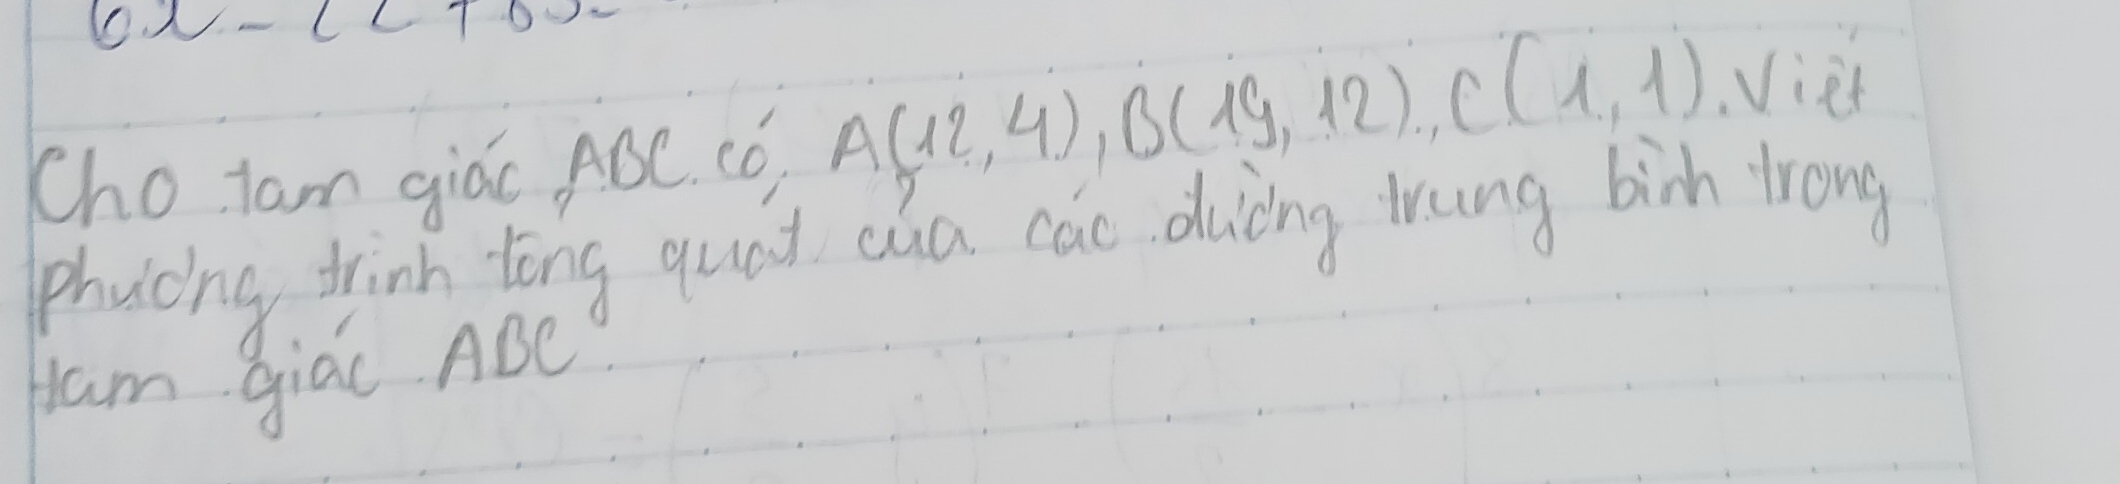 Cho tam giác ABC có A(12, 4), B(19, 12), C(1, 1). Viết
phương trình tổng quát của các đường trung bình trong
tam giác ABC.